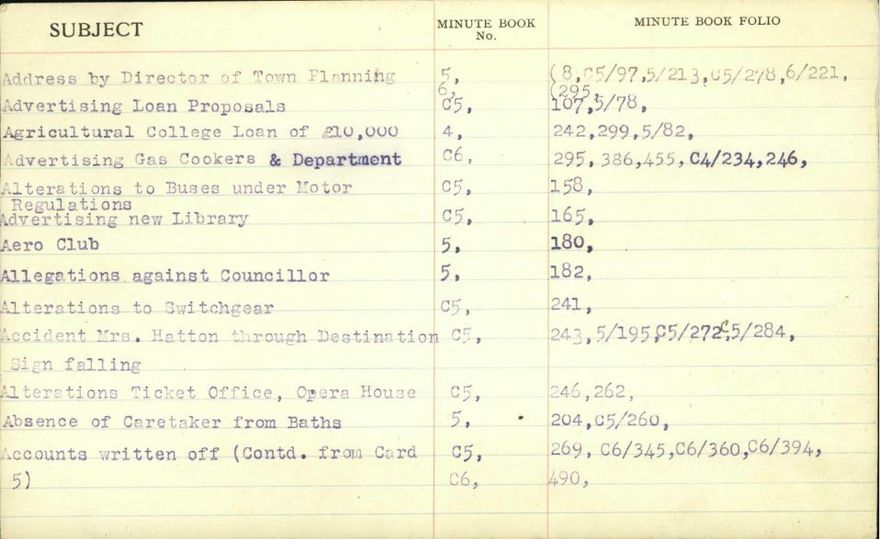 SUBJECT MINUTE BOOK No. MINUTE BOOK FOLIO
Address by Director of Town Planning 5, (8,C5/97,5/213,C5/278,6/221,
6, (295,
Advertising Loan Proposals C5, 107,5/78,
Agricultural College Loan of £10,000 4, 242,299,5/82,
Advertising Gas Cookers & Department C6, 295, 386,455, C4/234,246,
Alterations to Buses under Motor C5, 158,
Regulations
Advertising new Library C5, 165,
Aero Club 5, 180,
Allegations against Councillor 5, 182,
Alterations to Switchgear C5, 241,
Accident Mrs. Hatton through Destination C5, 243,5/195,C5/272,C5/284,
Sign falling
Alterations Ticket Office, Opera House C5, 246,262,
Absence of Caretaker from Baths 5, 204,C5/260,
Accounts written off (Contd. from Card C5, 269, C6/345,C6/360,C6/394,
5) C6, 490,